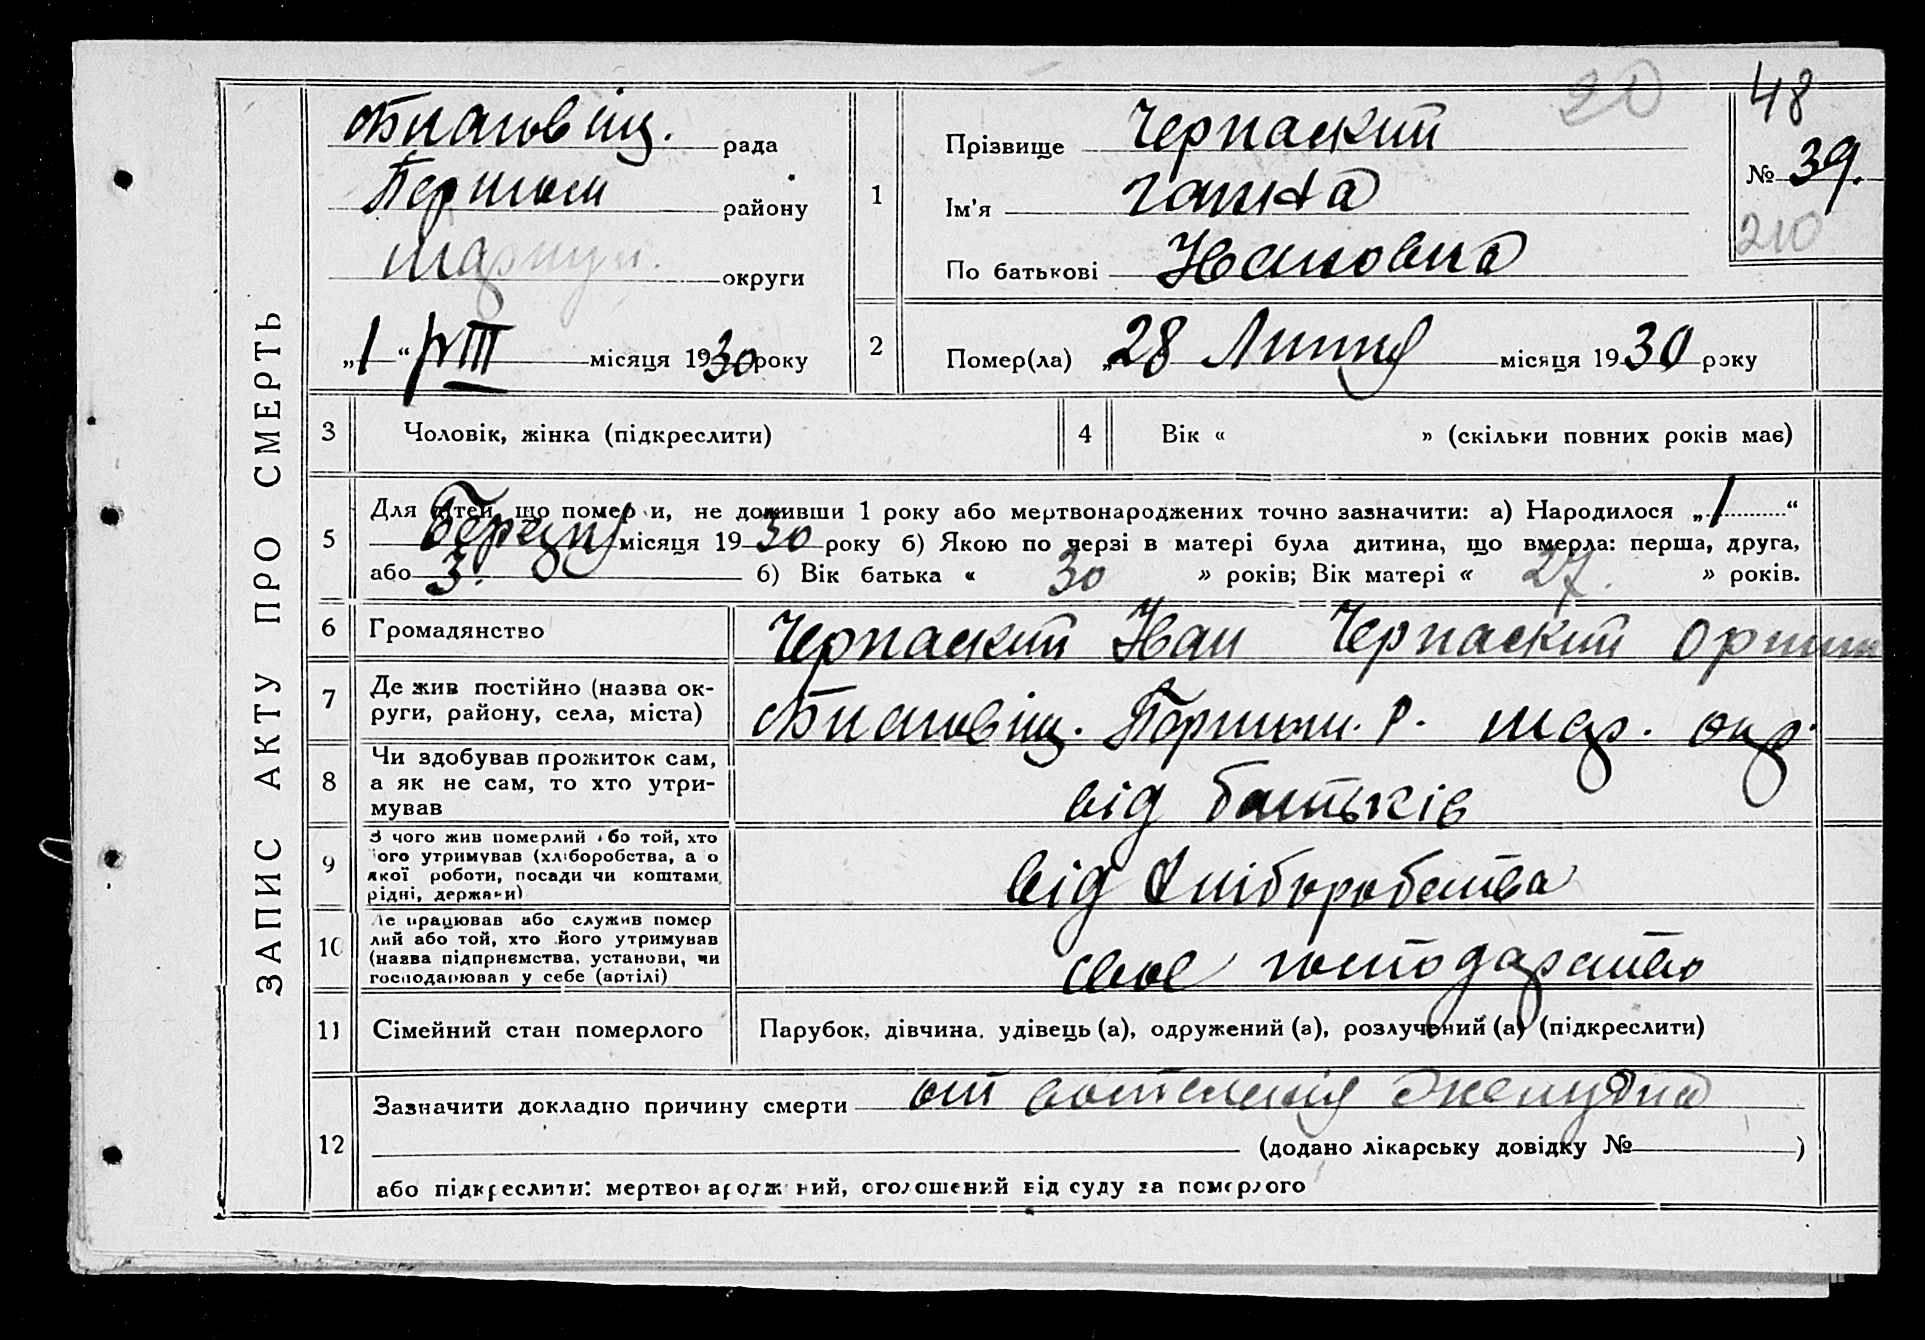 ЗАПИС АКТУ ПРО СМЕРТЬ
рада
району
округи
„1“ VIII місяця 1930 року
20
48
№ 39.
210
1
Прізвище Черпаский
Ім'я Ганна
По батькові Ивановна
2
Помер(ла) „28 Липня місяця 1930 року
3
Чоловік, жінка (підкреслити)
4
Вік « » (скільки повних років має)
5
Для дітей, що померли, не доживши 1 року або мертвонароджених точно зазначити: а) Народилося „1“
Березня місяця 1930 року б) Якою по черзі в матері була дитина, що вмерла: перша, друга,
або 3. б) Вік батька « 30 » років; Вік матері « 27. » років.
6
Громадянство Черпаский Иван Черпаский
7
Де жив постійно (назва ок-
руги, району, села, міста) р. окр.
8
Чи здобував прожиток сам,
а як не сам, то хто утри-
мував
від батьків
9
З чого жив померлий або той, хто
його утримував (хліборобства, а о
якої роботи, посади чи коштами
рідні, держави)
від хліборобства
10
Де працював або служив помер
лий або той, хто його утримував
(назва підприємства, установи, чи
господарював у себе (артілі)
своє господарство
11
Сімейний стан померлого
Парубок, дівчина, удівець (а), одружений (а), розлучений (а) (підкреслити)
12
Зазначити докладно причину смерти от воспеления желудка
(додано лікарську довідку № )
або підкреслити: мертвонароджений, оголошений від суду за померлого